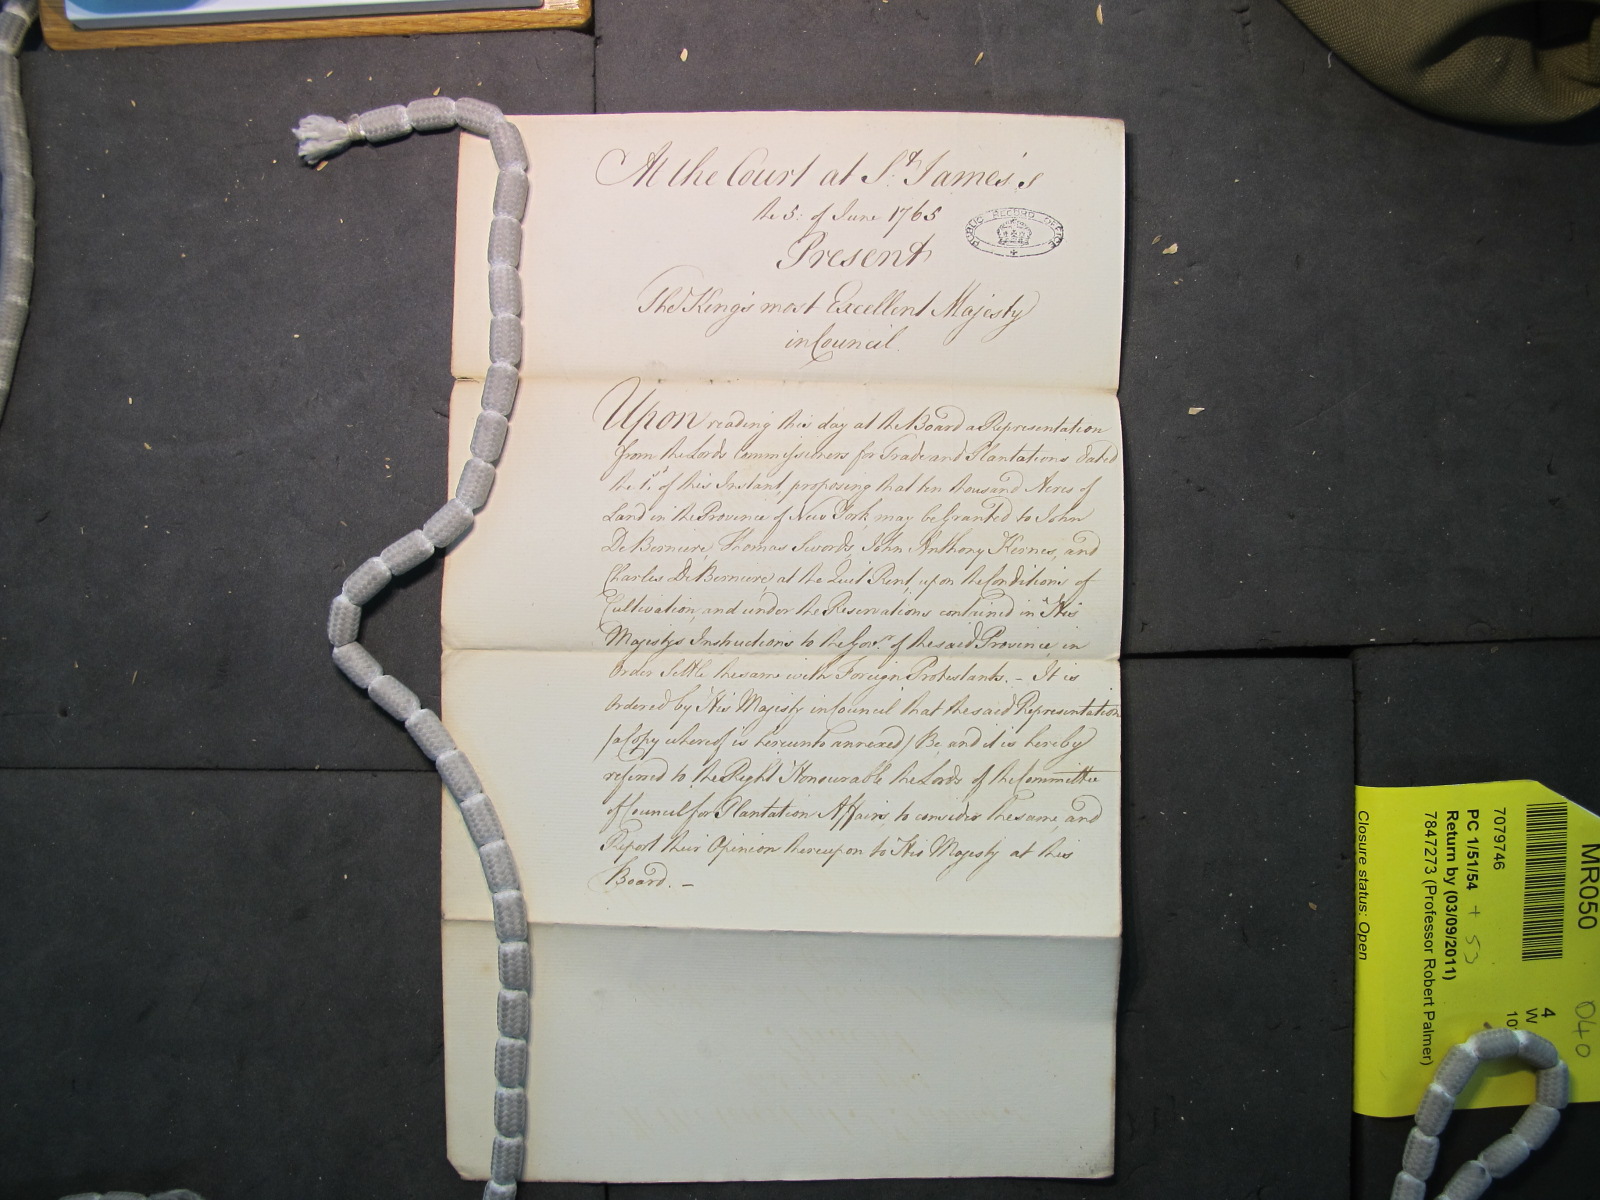 At the Court at St. James's
the 5: of June 1765
PUBLIC RECORD OFFICE
Present
The King's most Excellent Majesty
in Council.
Upon reading this day at the Board a Representation
from the Lords Commissioners for Trade and Plantations dated
the 1st. of this Instant, proposing that ten thousand Acres of
Land in the Province of New York, may be Granted to John
De Berniere, Thomas Swords, John Anthony Kernes, and
Charles De Berniere, at the Quit Rent, upon the Conditions of
Cultivation, and under the Reservations contained in His
Majestys Instructions to the Govr. of the said Province, in
Order Settle the same with Foreign Protestants. – It is
Ordered by His Majesty in Council that the said Representation
/a Copy whereof is hereunto annexed/ Be, and it is hereby
referred to the Right Honourable the Lords of the Committee
of Council for Plantation Affairs, to consider the same, and
Report their Opinion thereupon to His Majesty at this
Board. –
MR050
7079746
PC 1/51/54 + 53
Return by (03/09/2011)
7847273 (Professor Robert Palmer)
Closure status: Open
4
W
10
040